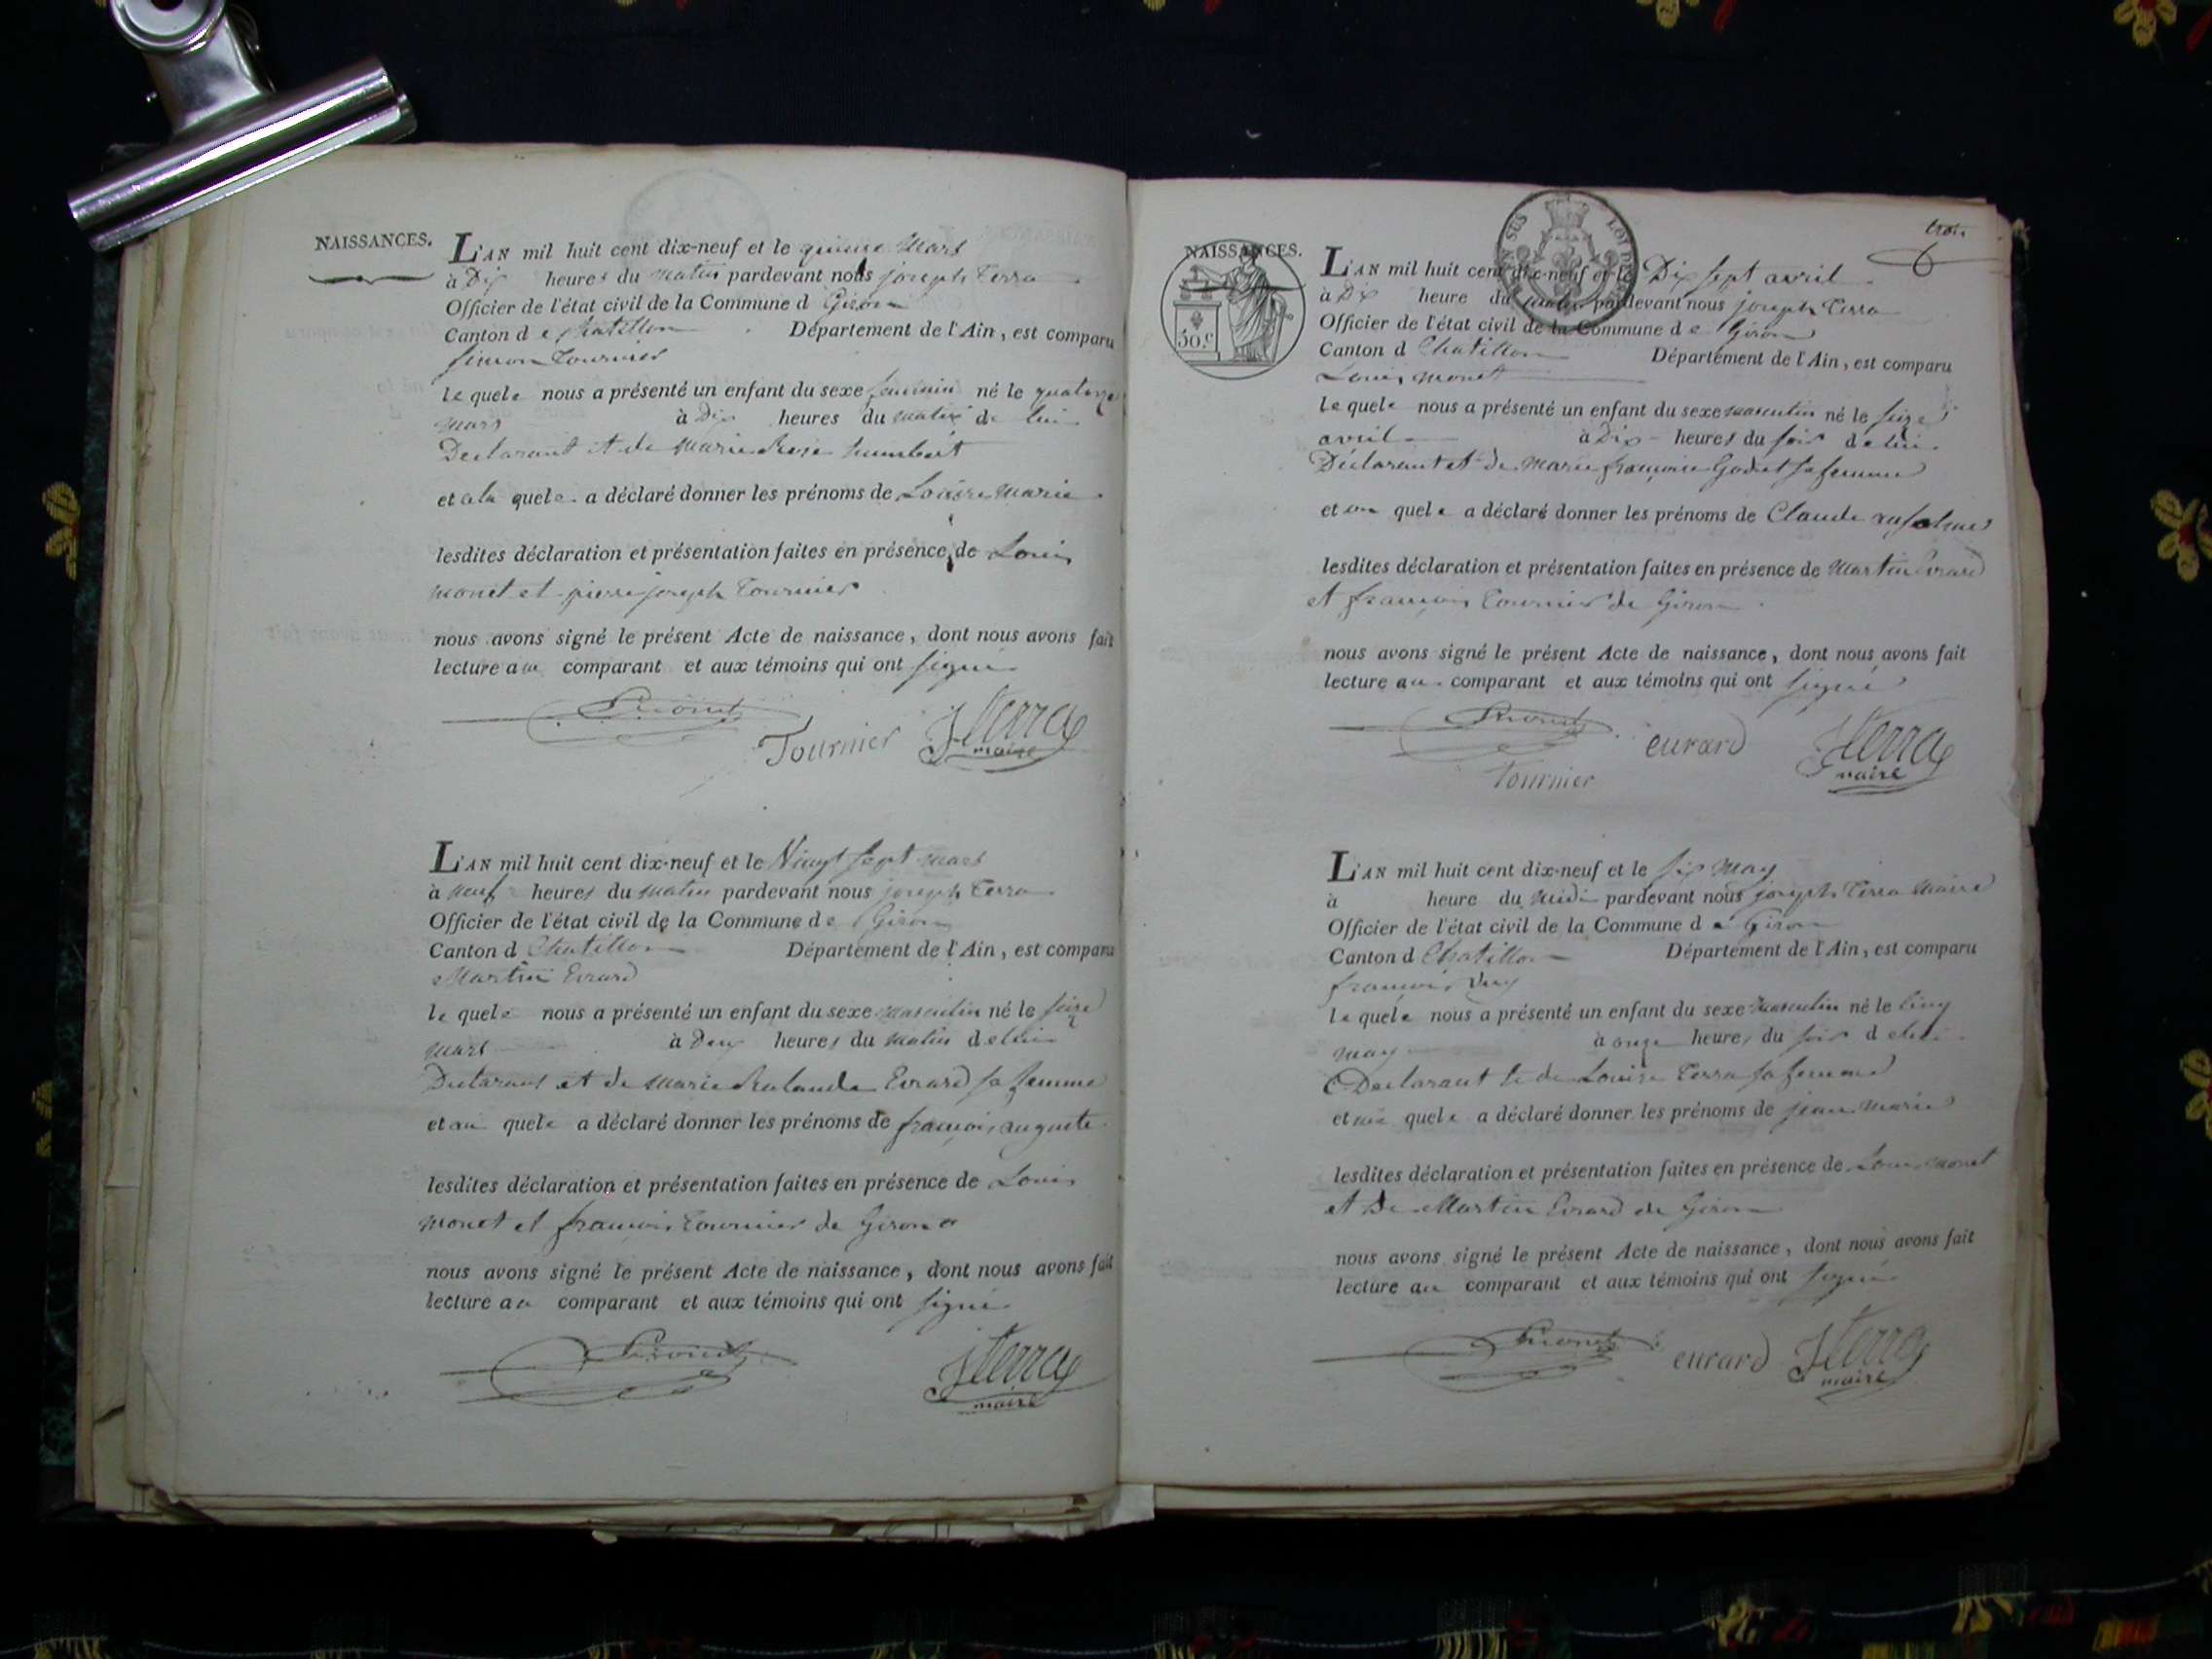 NAISSANCES.
L'AN mil huit cent dix-neuf et le quinze Mars
à Dix heures du matin pardevant nous joseph Terra
Officier de l'état civil de la Commune d Giron
Canton d e Chatillon Département de l'Ain, est comparu
Simon Tournier
le quele nous a présenté un enfant du sexe feminin né le quatorze
mars à Dix heures du matin de lui
Declarant et de Marie Rose humbert
et a la quele a déclaré donner les prénoms de Louise Marie
lesdites déclaration et présentation faites en présence de Louis
monet et pierre joseph Tournier
nous avons signé le présent Acte de naissance, dont nous avons fait
lecture au comparant et aux témoins qui ont signé
Lmonet
Tournier JTerra
maire
L'AN mil huit cent dix-neuf et le Vingt sept mars
à neuf heures du matin pardevant nous joseph Terra
Officier de l'état civil de la Commune de Giron
Canton d Chatillon Département de l'Ain, est comparu
Martin Evrard
le quele nous a présenté un enfant du sexe masculin né le seize
mars à Deux heures du matin de lui
Declarant et de Marie Evrard sa femme
et au quele a déclaré donner les prénoms de françois auguste
lesdites déclaration et présentation faites en présence de Louis
monet et françois Tournier de Giron
nous avons signé le présent Acte de naissance, dont nous avons fait
lecture au comparant et aux témoins qui ont signé
Lmonet JTerra
maire
trois
NAISSANCES.
50.c
L'AN mil huit cent dix-neuf et le Dix sept avril
à Dix heure du matin pardevant nous joseph Terra
Officier de l'état civil de la Commune d e Giron
Canton d Chatillon Département de l'Ain, est comparu
Louis monet
le quele nous a présenté un enfant du sexe masculin né le seize
avril à Dix heures du soir de lui
Déclarant et de Marie françoise Godet sa femme
et au quele a déclaré donner les prénoms de Claude
lesdites déclaration et présentation faites en présence de Martin Evrard
et françois Tournier de Giron
nous avons signé le présent Acte de naissance, dont nous avons fait
lecture au comparant et aux témoins qui ont signé
Lmonet evrard JTerra
Tournier maire
L'AN mil huit cent dix-neuf et le six May
à heure du midi pardevant nous joseph Terra Maire
Officier de l'état civil de la Commune d e Giron
Canton d Chatillon Département de l'Ain, est comparu
françois
le quele nous a présenté un enfant du sexe masculin né le cinq
may à onze heures du soir de lui
Declarant et de Louise Terra sa femme
et au quele a déclaré donner les prénoms de jean marie
lesdites déclaration et présentation faites en présence de Louis monet
et De Martin Evrard de Giron
nous avons signé le présent Acte de naissance, dont nous avons fait
lecture au comparant et aux témoins qui ont signé
Lmonet evrard JTerra
maire